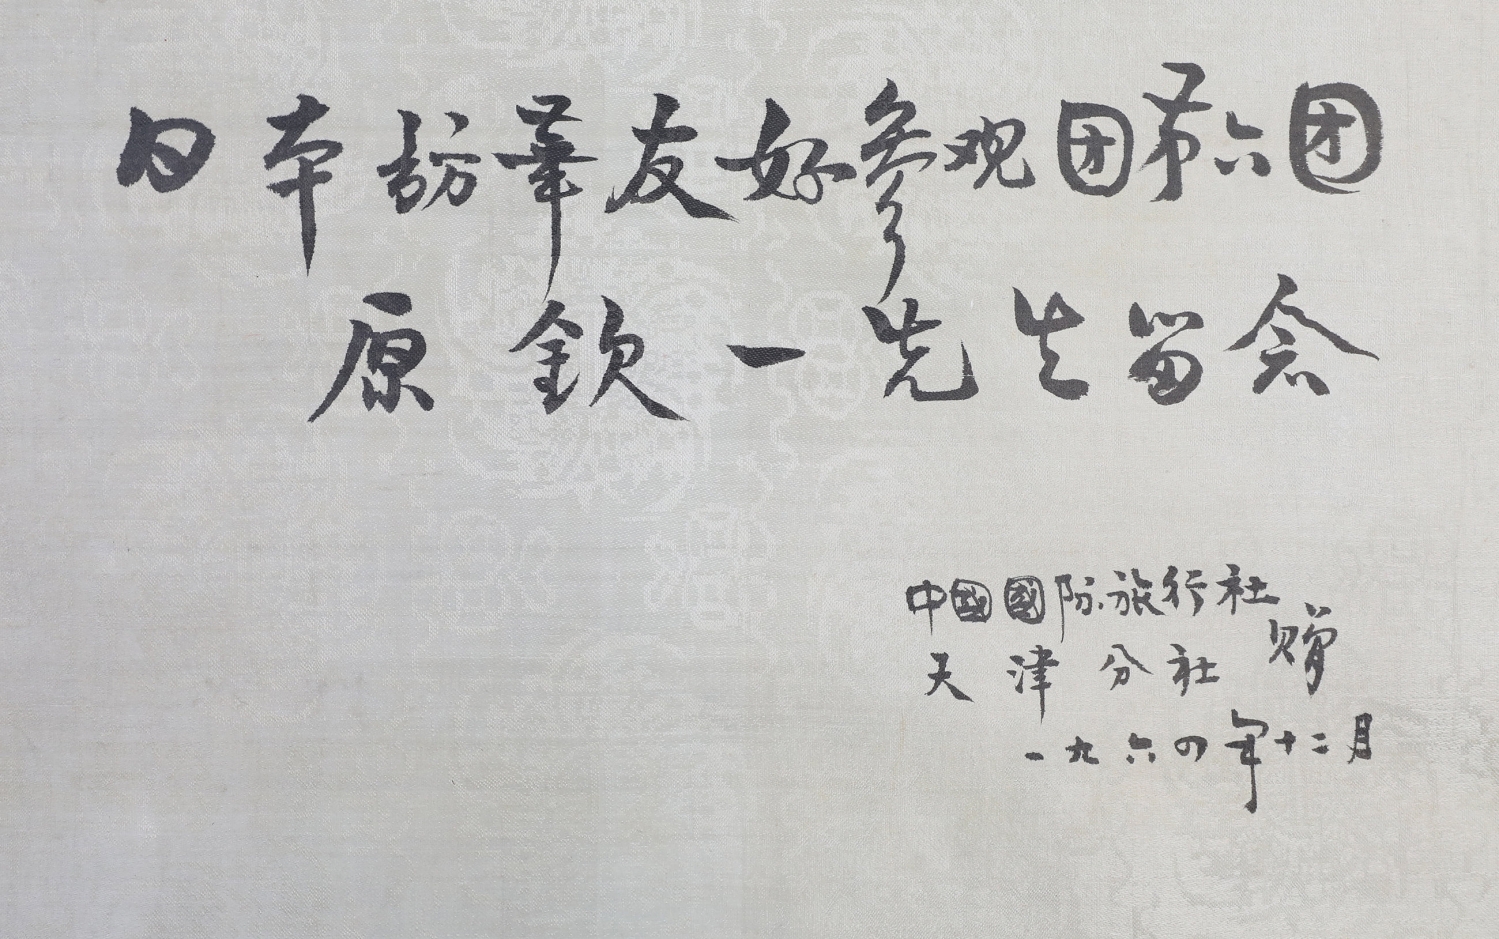 日本訪華友好参观团第六团
原欽一先生留念
中國國际旅行社
天津分社 赠
一九六四年十二月